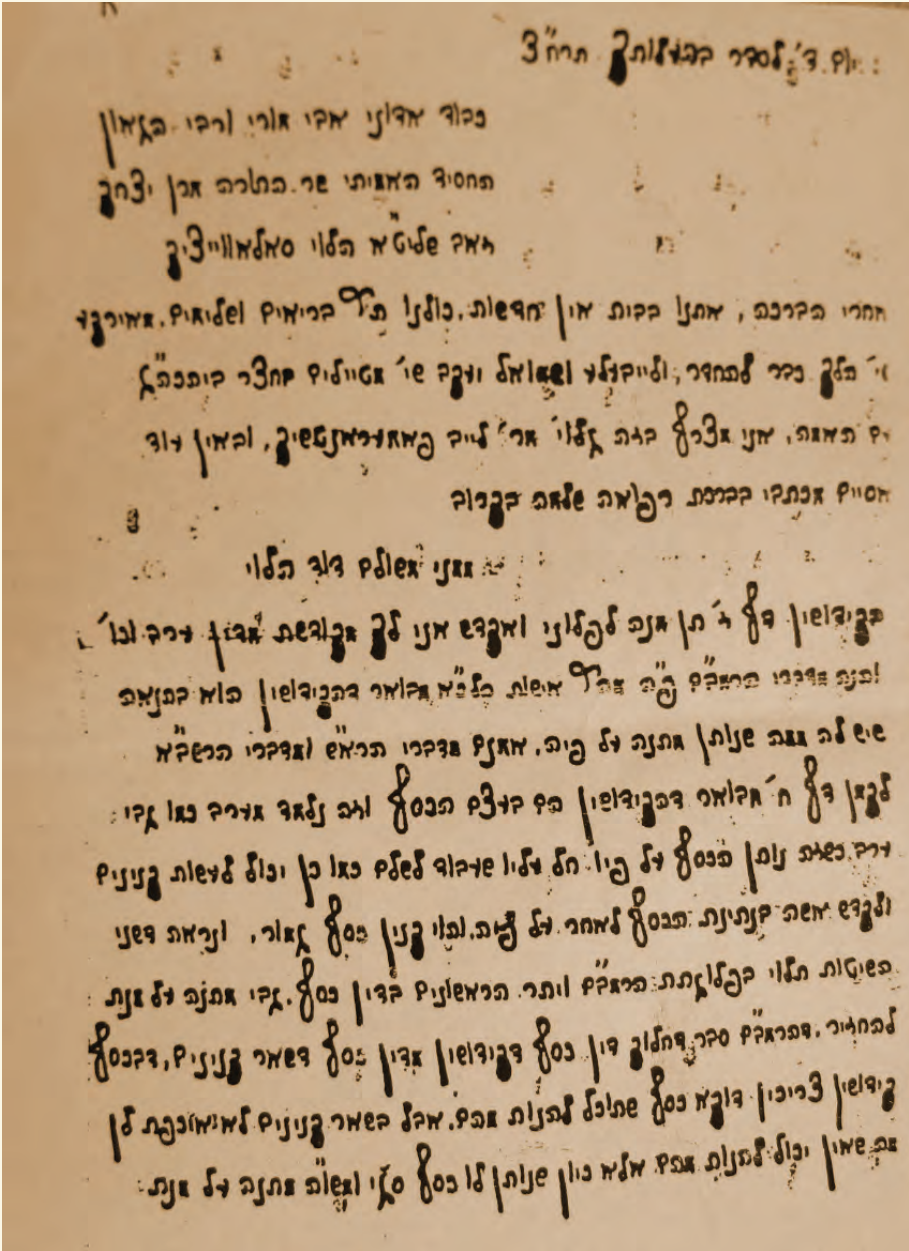 יום ד' לסדר בהעלותך תרח"צ
כבוד אדוני אבי מורי ורבי הגאון
החסיד האמיתי שר התורה מרן יצחק
זאב שליט"א הלוי סאלאווייציק
אחרי הברכה, אתנו בבית אין חדשות, כולנו ת"ל בריאים ושלימים.
הלך כבר להחדר, ושמואל ויעקב שי' מטיילים בחצר
התאנה, אני מצרף בזה גלוי' מר' לייב, ובאין עוד
אסיים מכתבי בברכת רפואה שלמה בקרוב
ממני משולם דוד הלוי
בקידושין דף ז' תן מנה לפלוני ואקדש אני לך מקודשת מדין ערב וכו'
והנה מדברי הרמב"ם פ"ה מהל' אישות מבואר דהקידושין הוא בהנאה
שיש לה ממה שנותן מתנה על פיה, אמנם מדברי הרא"ש ומדברי הרשב"א
לקמן דף ח' מבואר דהקידושין הם בעצם הכסף וזה נלמד מערב כמו גבי
ערב כשזה נותן הכסף על פיו חל עליו שעבוד לשלם כמו כן יכול לעשות קנינים
ולקדש אשה בנתינת הכסף לאחר על פיה, והוי קנין כסף גמור, ונראה דשני
השיטות תלוי בפלוגתת הרמב"ם ויתר הראשונים בדין כסף, גבי מתנה על מנת
להחזיר, דהרמב"ם סבר דחלוק דין כסף דקידושין מדין כסף דשאר קנינים, דבכסף
קידושין צריכין דוקא כסף שתוכל להנות מהם, אבל בשאר קנינים לא איכפת לן
מה שאין יכול להנות מהם אלא כיון שנותן לו כסף סגי ומשו"ה מתנה על מנת